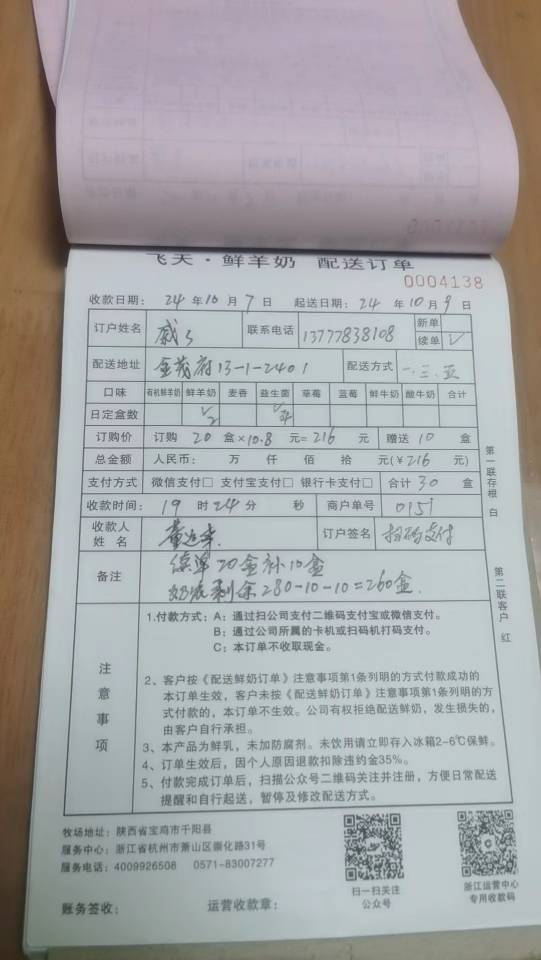 飞天·鲜羊奶 配送订单
0004138
收款日期: 24 年 10 月 7 日 起送日期: 24 年 10 月 9 日
订户姓名 联系电话 13777838108 新单
续单 √
配送地址 金茂府13-1-2401 配送方式 一.三.五
口味 有机鲜羊奶 鲜羊奶 麦香 益生菌 草莓 蓝莓 鲜牛奶 酸牛奶 合计
日定盒数
订购价 订购 20 盒×10.8 元=216 元 赠送 10 盒
总金额 人民币: 万 仟 佰 拾 元(¥216 元)
支付方式 微信支付□ 支付宝支付□ 银行卡支付□ 合计 30 盒
收款时间: 19 时 24 分 秒 商户单号 0151
收款人姓名 订户签名 扫码支付
备注 续单20盒补10盒
剩余280-10-10=260盒.
第一联存根 白
第二联客户 红
注意事项
1.付款方式: A: 通过扫公司支付二维码支付宝或微信支付。
B: 通过公司所属的卡机或扫码机打码支付。
C: 本订单不收取现金。
2、客户按《配送鲜奶订单》注意事项第1条列明的方式付款成功的
本订单生效,客户未按《配送鲜奶订单》注意事项第1条列明的方
式付款的,本订单不生效。公司有权拒绝配送鲜奶,发生损失的,
由客户自行承担。
3、本产品为鲜乳,未加防腐剂。未饮用请立即存入冰箱2-6℃保鲜。
4、订单生效后,因个人原因退款扣除违约金35%。
5、付款完成订单后,扫描公众号二维码关注并注册,方便日常配送
提醒和自行起送,暂停及修改配送方式。
牧场地址: 陕西省宝鸡市千阳县
服务中心: 浙江省杭州市萧山区崇化路31号
服务电话: 4009926508 0571-83007277
扫一扫关注
公众号
浙江运营中心
专用收款码
账务签收: 运营收款章: